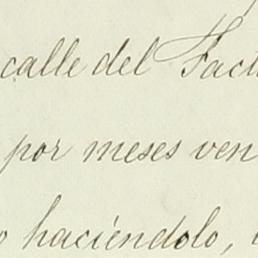 calle del Fact
por meses ven
o haciéndolo,